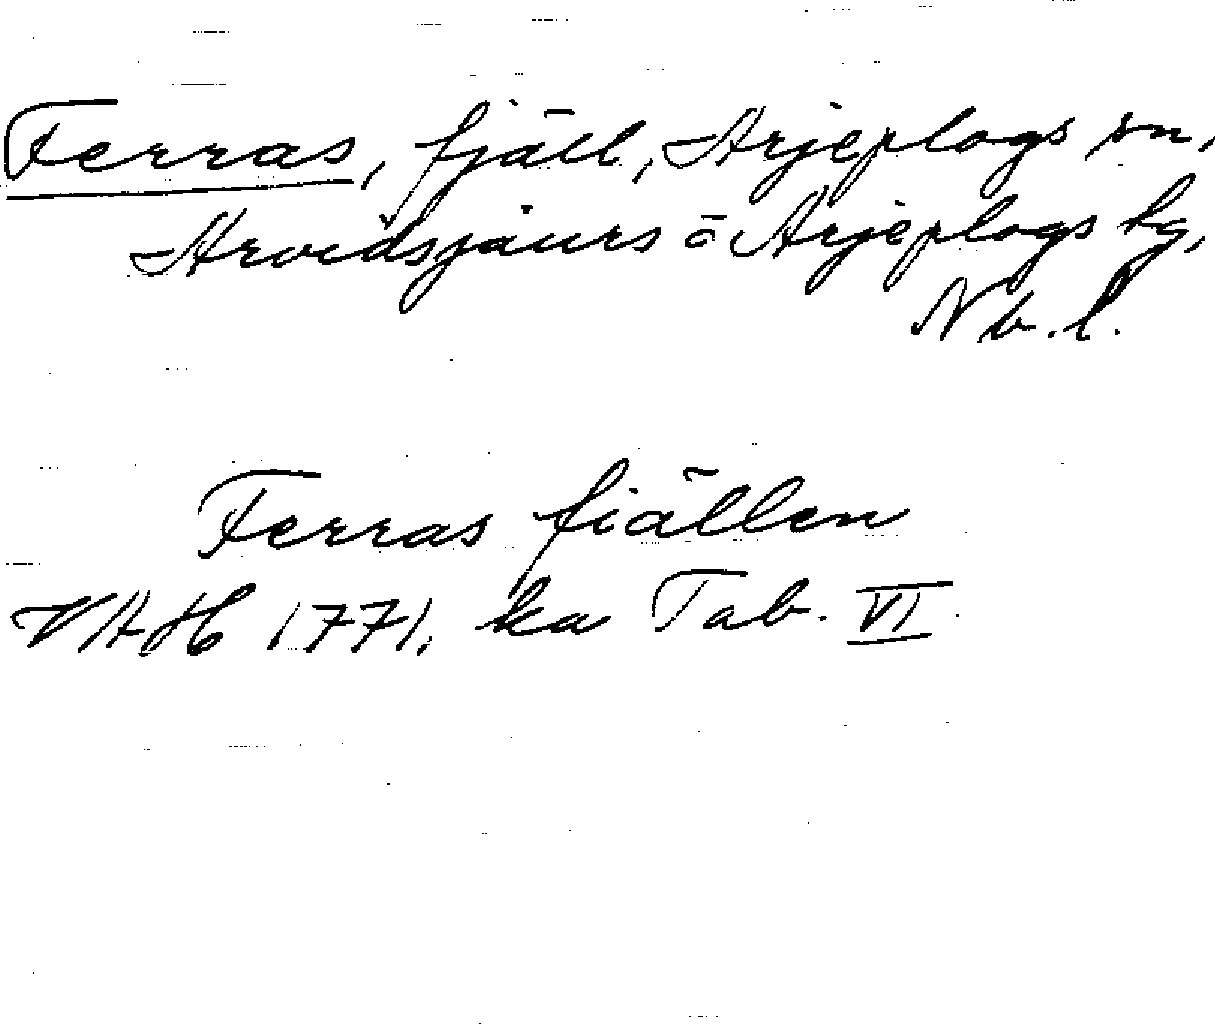 Ferras, fjäll, Arjeplogs sn,
Arvidsjaurs o Arjeplogs tg,
Nb. l.
Ferras fiällen
VAH 1771, ka Tab. VI